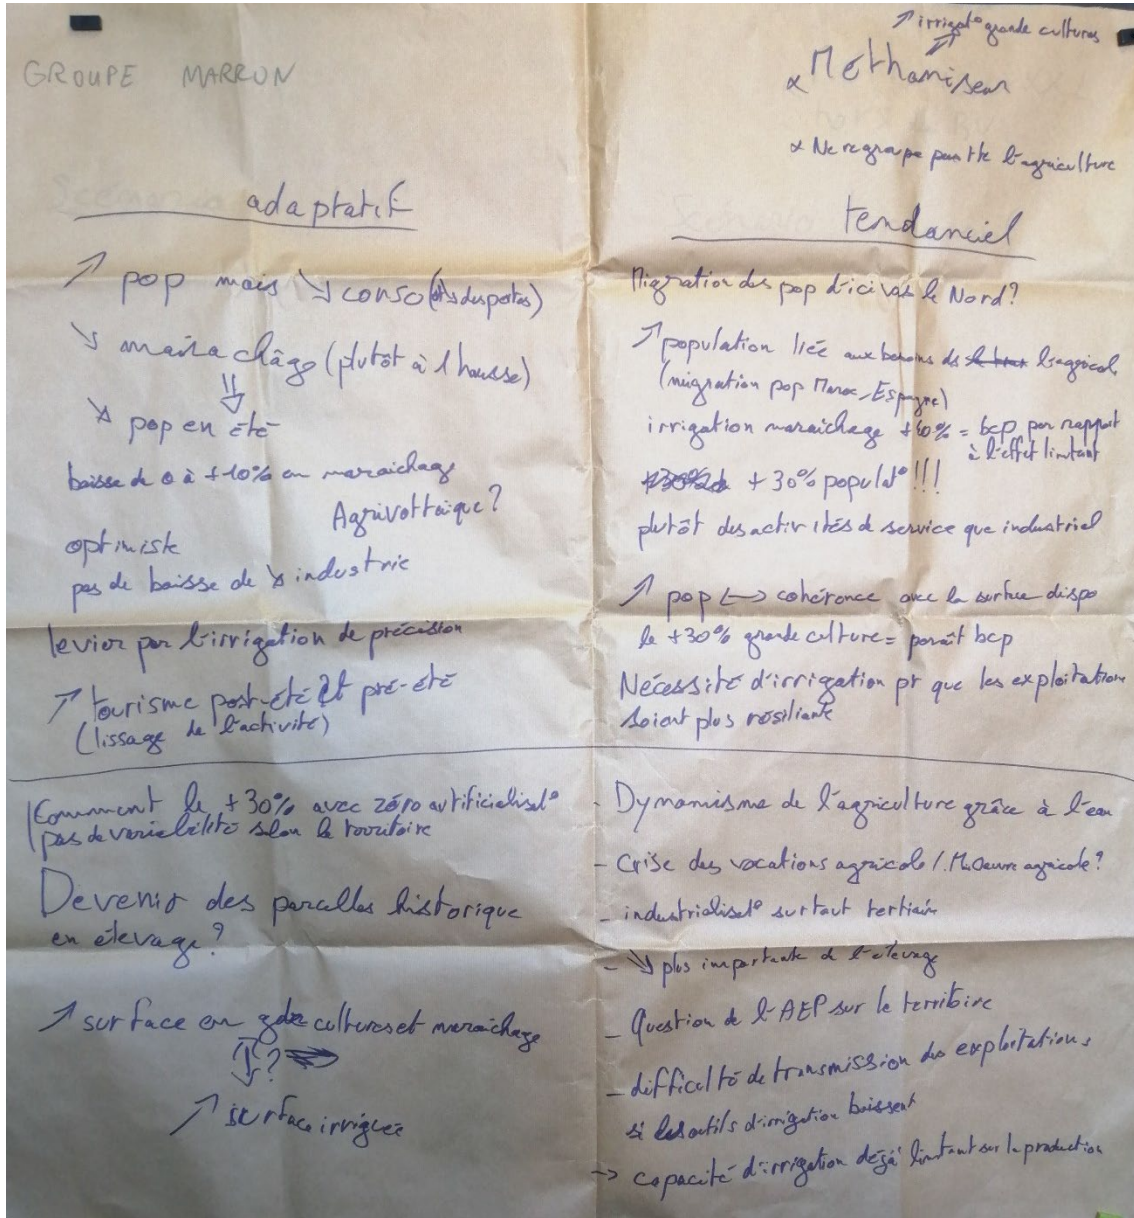 GROUPE MARRON
↗ irrigat° grande cultures
∝ Méthaniseur
∝ Ne regroupe pas tte l'agriculture
adaptatif
↗ pop mais ↘ conso (des pertes)
↘ maraichâge (plutôt à l hausse)
⇓
↘ pop en été
baisse de 0 à +10% en maraichage
Agrivoltaïque?
optimiste
pas de baisse de ↘ industrie
levier par l'irrigation de précision
↗ tourisme post-été et pré-été
(lissage de l'activité)
Comment le +30% avec zéro artificialisat°
pas de variabilité selon le territoire
Devenir des parcelles historique
en élevage?
↗ surface en gde cultures et maraichage
?
↗ surface irriguée
tendanciel
Migration des pop d'ici vers le Nord?
↗ population liée aux besoins de l'agricole
(migration pop Maroc, Espagne)
irrigation maraichage = bcp par rapport
à l'effet limitant
+30% populat° !!!
plutôt des activités de service que industriel
↗ pop ↔ cohérence avec la surface dispo
le +30% grande culture = paraît bcp
Nécessité d'irrigation pr que les exploitations
soient plus résiliante
- Dynamisme de l'agriculture grâce à l'eau
- Crise des vocations agricole / M. Oeuvre agricole?
- industrialisat° surtout tertiair
- ↘ plus importante de l'élevage
- Question de l'AEP sur le territoire
- difficulté de transmission des exploitations
si les outils d'irrigation baissent
-> capacité d'irrigation déjà limitant sur la production